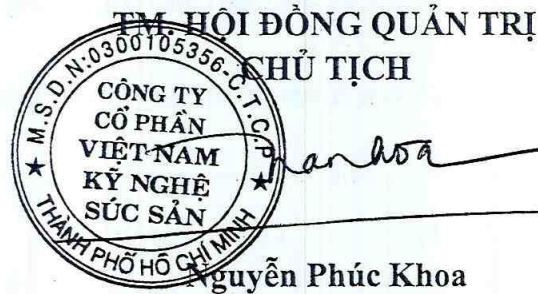 TM. HỘI ĐỒNG QUẢN TRỊ
CHỦ TỊCH
M.S.D.N:0300105356-C.T.C.P
CÔNG TY
CỔ PHẦN
VIỆT NAM
KỸ NGHỆ
SÚC SẢN
THÀNH PHỐ HỒ CHÍ MINH
Nguyễn Phúc Khoa